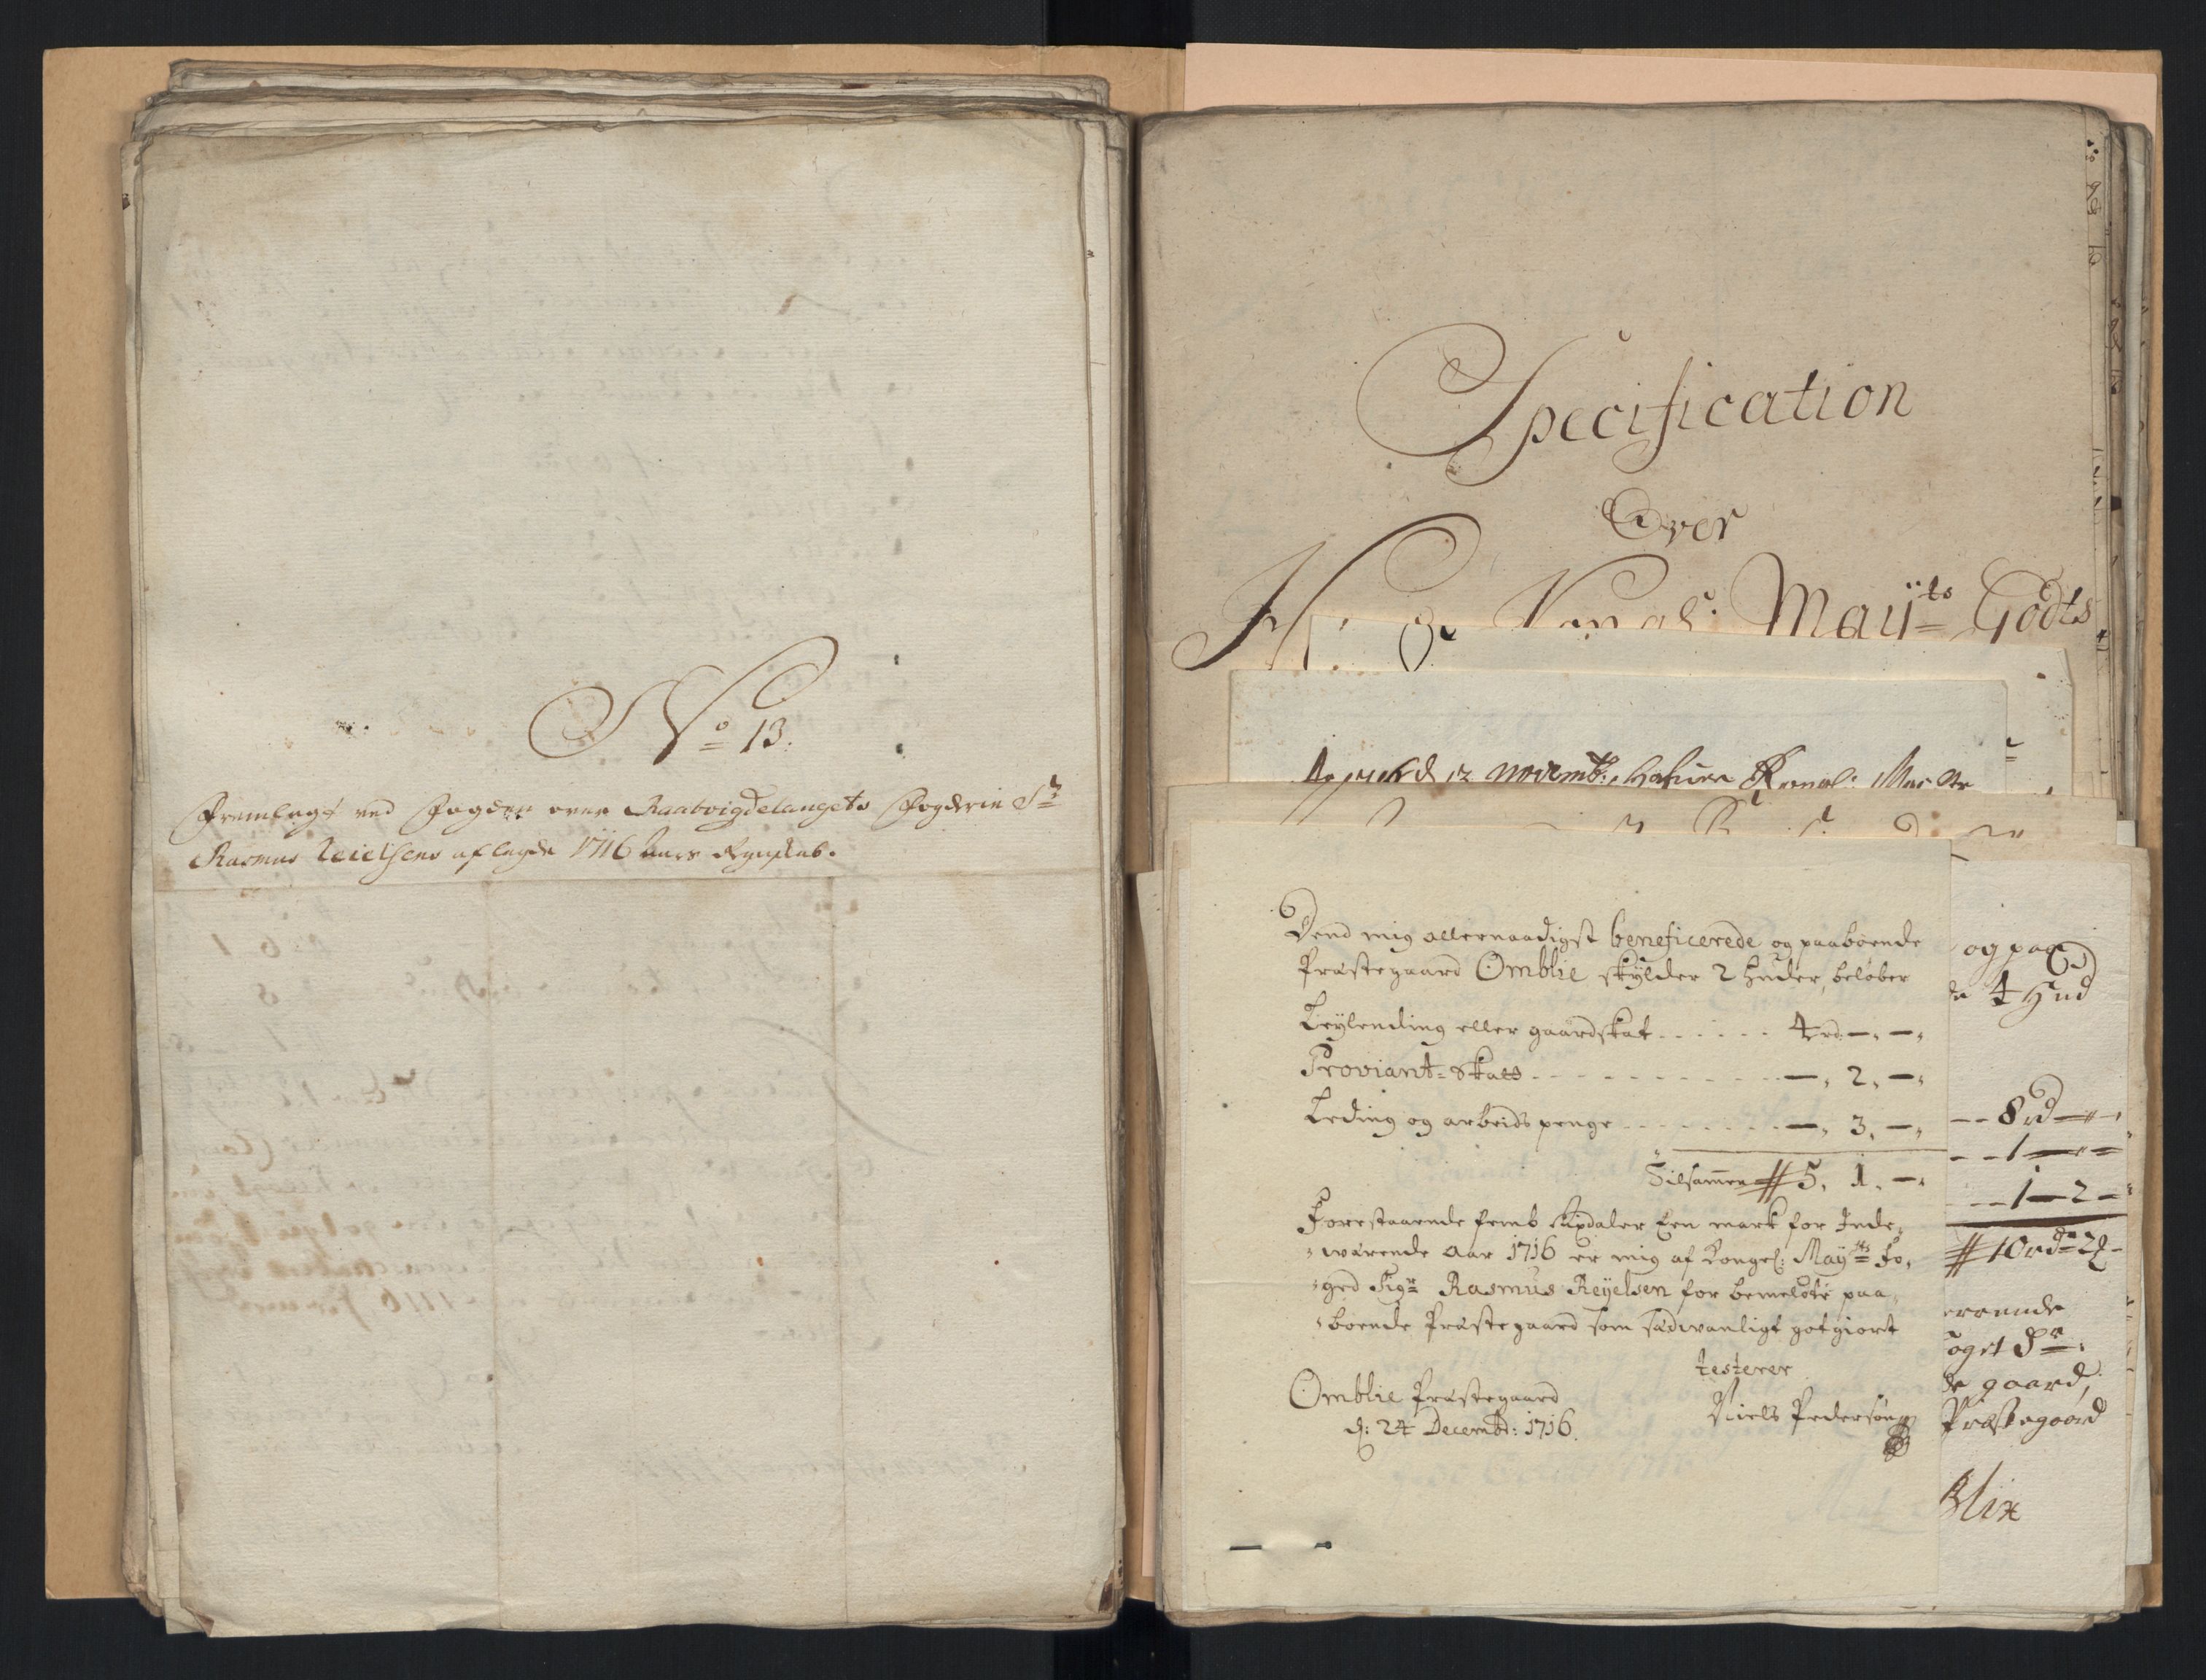 No 13.
Fremlagt ved Fogden over Raabøigdelaugets Fogderie Sr
Rasmus Reielsens aflagde 1716 Aars Regnskab.
Specification
Over
May:ts Godts
novemb:
Dend mig allernaadigst beneficerede og paaboende
Præstegaard Omblie skylder 2 huder, beløber
Leylending eller gaardskat . . . . . 4 rd — , — ,
Proviant-Skatt . . . . . — , 2 , — ,
Leding og arbeids penge . . . . . — , 3 , — ,
Tilsammen # 5 , 1 , — ,
Forestaaende femb Rixdaler Een mark for Inde,
, wærende Aar 1716 er mig af Kongel: Mayts Fo,
, ged Sigr Rasmus Reyelsen for bemelte paa,
, boende Præstegaard som sædwanligt gotgiort
testerer
Omblie Præstegaard
d: 24 Decembr: 1716.
Niels Pedersøn
og paa
4 Hud
-- 8 rd
-- 1
-- 1 - 2 -
# 10 rdr 2
Sr:
de gaard,
Præstegaard
Blix